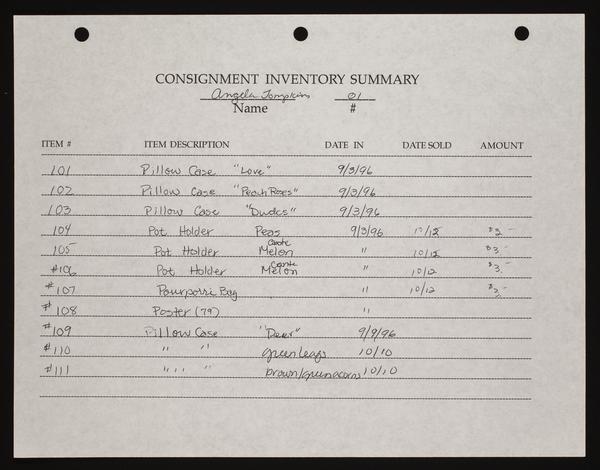 CONSIGNMENT INVENTORY SUMMARY
Angela Tompkins 01
Name #
ITEM # ITEM DESCRIPTION DATE IN DATE SOLD AMOUNT
101 Pillow Case "Love" 9/3/96
102 Pillow Case "Peach Roses" 9/3/96
103 Pillow Case "Dudes" 9/3/96
104 Pot Holder Peas 9/3/96 10/12 $3.-
105 Pot Holder Cante Melon " 10/12 $3.-
#106 Pot Holder Cante Melon " 10/12 $3.-
#107 Pourporri Bag " 10/12 $3.-
#108 Poster (79) "
#109 Pillow Case "Deer" 9/9/96
#110 " " green leafs 10/10
#111 " " " brown/green acorns 10/10